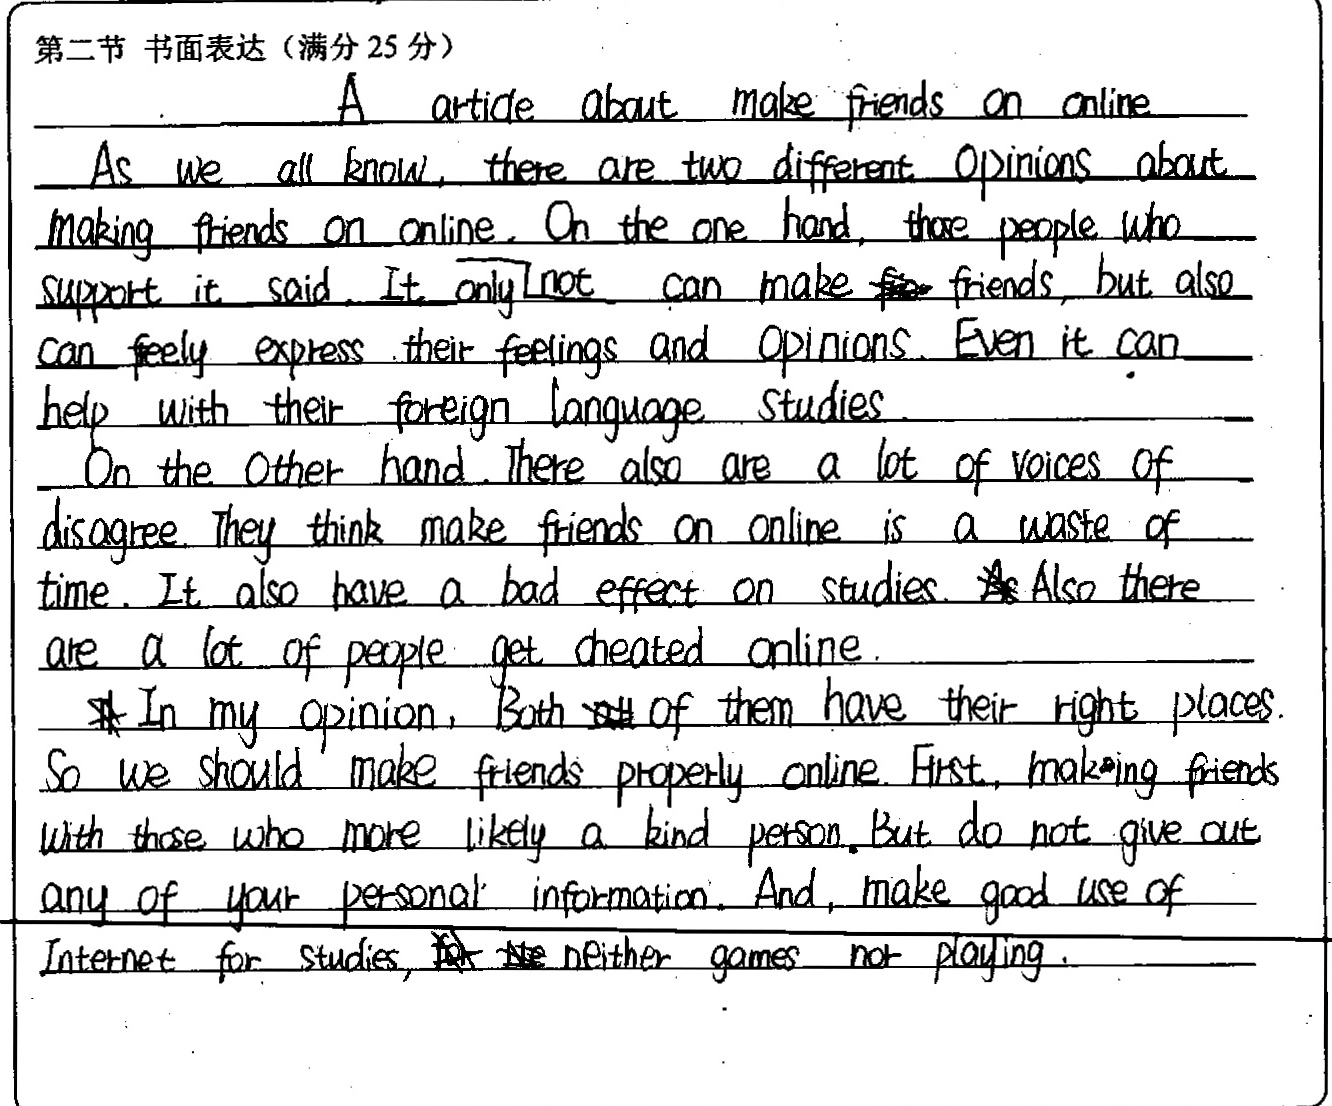 第二节 书面表达（满分 25 分）
A article about make friends on online
As we all know, there are two different Opinions about
making friends on online. On the one hand, those people who
support it said. It only not can make friends, but also
can feely express their feelings and Opinions. Even it can
help with their foreign language studies.
On the Other hand. There also are a lot of voices of
disagree. They think make friends on online is a waste of
time. It also have a bad effect on studies. Also there
are a lot of people get cheated online.
In my opinion, Both of them have their right places.
So we should make friends properly online. First, making friends
with those who more likely a kind person. But do not give out
any of your personal information. And, make good use of
Internet for studies, neither games nor playing.